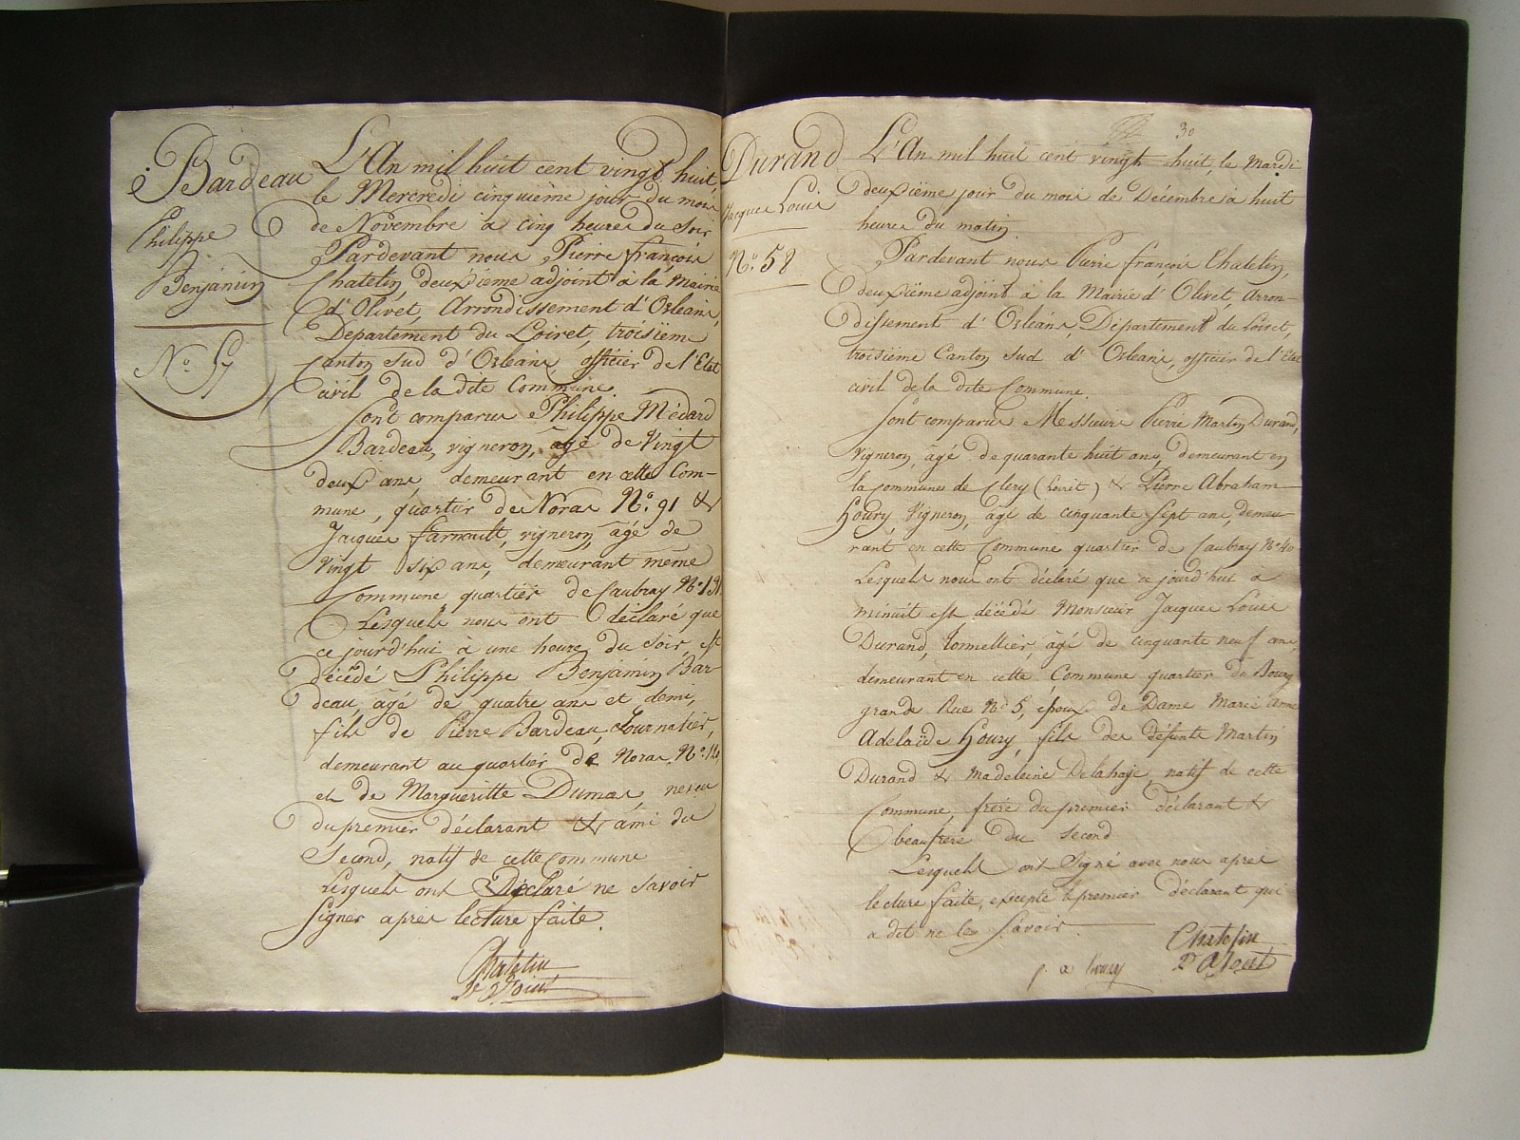 Bardeau
Philippe
Benjamin
N.o 57
L'An mil huit cent vingt huit,
le Mercredi cinquième jour du mois
de Novembre à cinq heures du Soir
Pardevant nous Pierre françois
Chatelin, deuxième adjoint à la Mairie
d'Olivet, Arrondissement d'Orléans,
Departement du Loiret, troisième
Canton Sud d'Orléans officier de l'Etat
civil de la dite Commune.
Sont comparus Philippe Médard
Bardeau, vigneron, âgé de Vingt
deux ans, demeurant en cette Com-
mune, quartier de Noras N.o 91 &
Jacques farnault, vigneron, âgé de
Vingt six ans, demeurant même
Commune quartier de Caubray N.o 131
Lesquels nous ont déclaré que
ce jourd'hui à une heure du Soir, est
décédé Philippe Benjamin Bar-
deau, âgé de quatre ans et demi,
fils de Pierre Bardeau, Journalier,
demeurant au quartier de Noras N.o
et de Margueritte Dumas neveu
du premier déclarant & ami du
Second, natif de cette Commune
Lesquels ont Déclaré ne savoir
Signer après lecture faite.
Chatelin
Durand
Jacques Louis
N.o 58
30
L'An mil huit cent vingt huit, le Mardi
deuxième jour du mois de Décembre à huit
heures du matin.
Pardevant nous Pierre françois Chatelin,
deuxième adjoint à la Mairie d'Olivet, Arron-
dissement d'Orléans, Département du Loiret,
troisième Canton Sud d'Orléans, officier de l'Etat
civil de la dite Commune.
Sont comparus Messieurs Pierre Martin Durand,
Vigneron, âgé de quarante huit ans, demeurant en
la Commune de Clery (Loiret) & Pierre Abraham
Houry, Vigneron, âgé de cinquante Sept ans, demeu-
rant en cette Commune quartier de Caubray N.o 40
Lesquels nous ont déclaré que ce jourd'hui à
minuit est décédé Monsieur Jacques Louis
Durand, tonnellier, âgé de cinquante neuf ans,
demeurant en cette Commune quartier du Bourg
grande Rue N.o 5, époux de Dame Marie Anne
Adelaïde Houry, fils des défunts Martin
Durand & Madeleine Delahaje, natif de cette
Commune, frère du premier déclarant &
beaufrère du Second
Lesquels ont Signé avec nous après
lecture faite, excepté le premier déclarant qui
a dit ne le Savoir.
p. a houry
Chatelin